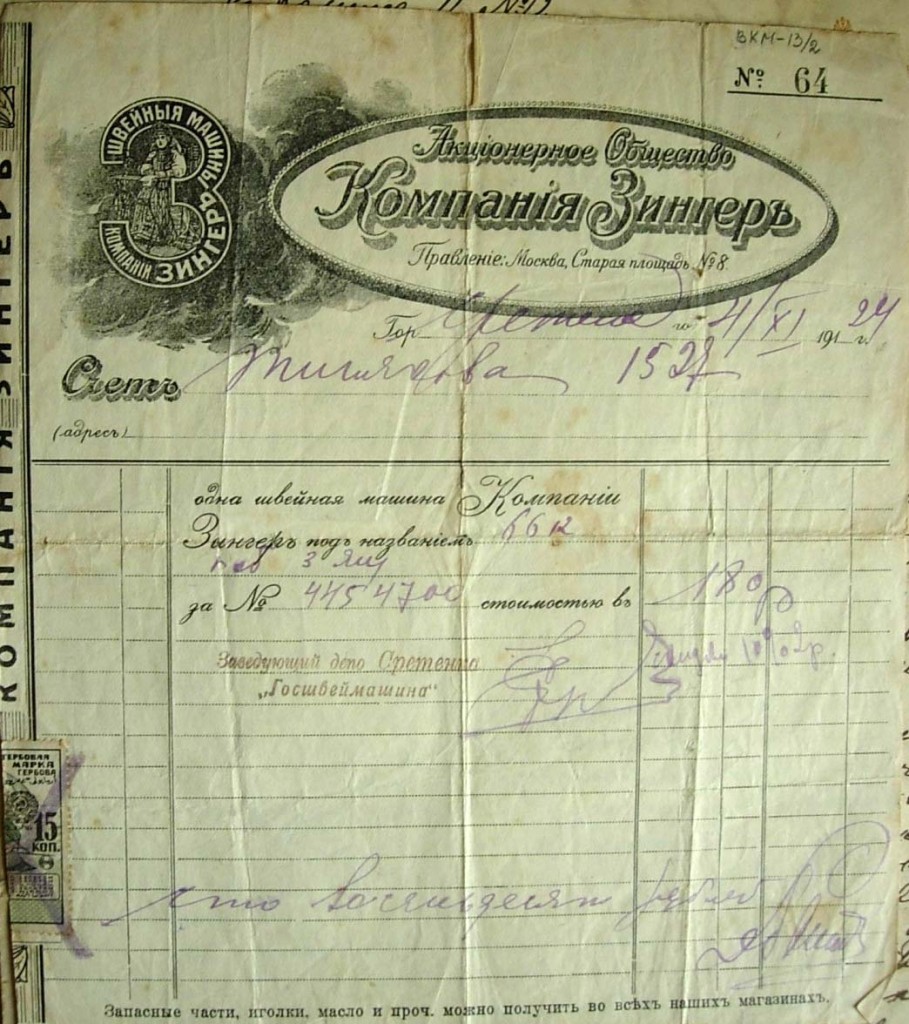 ВКМ-13/2
№: 64
ШВЕЙНЫЯ МАШИНЫ
КОМПАНІИ ЗИНГЕРЪ
Акціонерное Общество
Компанія Зингеръ
Правленіе: Москва, Старая площадь №8.
Гор. го 4/XI 1924 г.
Счетъ 1527
(адресъ)
одна швейная машина Компаніи
Зингеръ подъ названіемъ 66 к
3 ящ
за № 4454700 стоимостью въ 180 р
Заведующий депо Сретенка
„Госшвеймашина"
КОМПАНІЯ ЗИНГЕРЪ
ГЕРБОВАЯ
МАРКА
ГЕРБОВА
15
КОП.
сто восемьдесят рублей
Запасные части, иголки, масло и проч. можно получить во всѣхъ нашихъ магазинахъ.